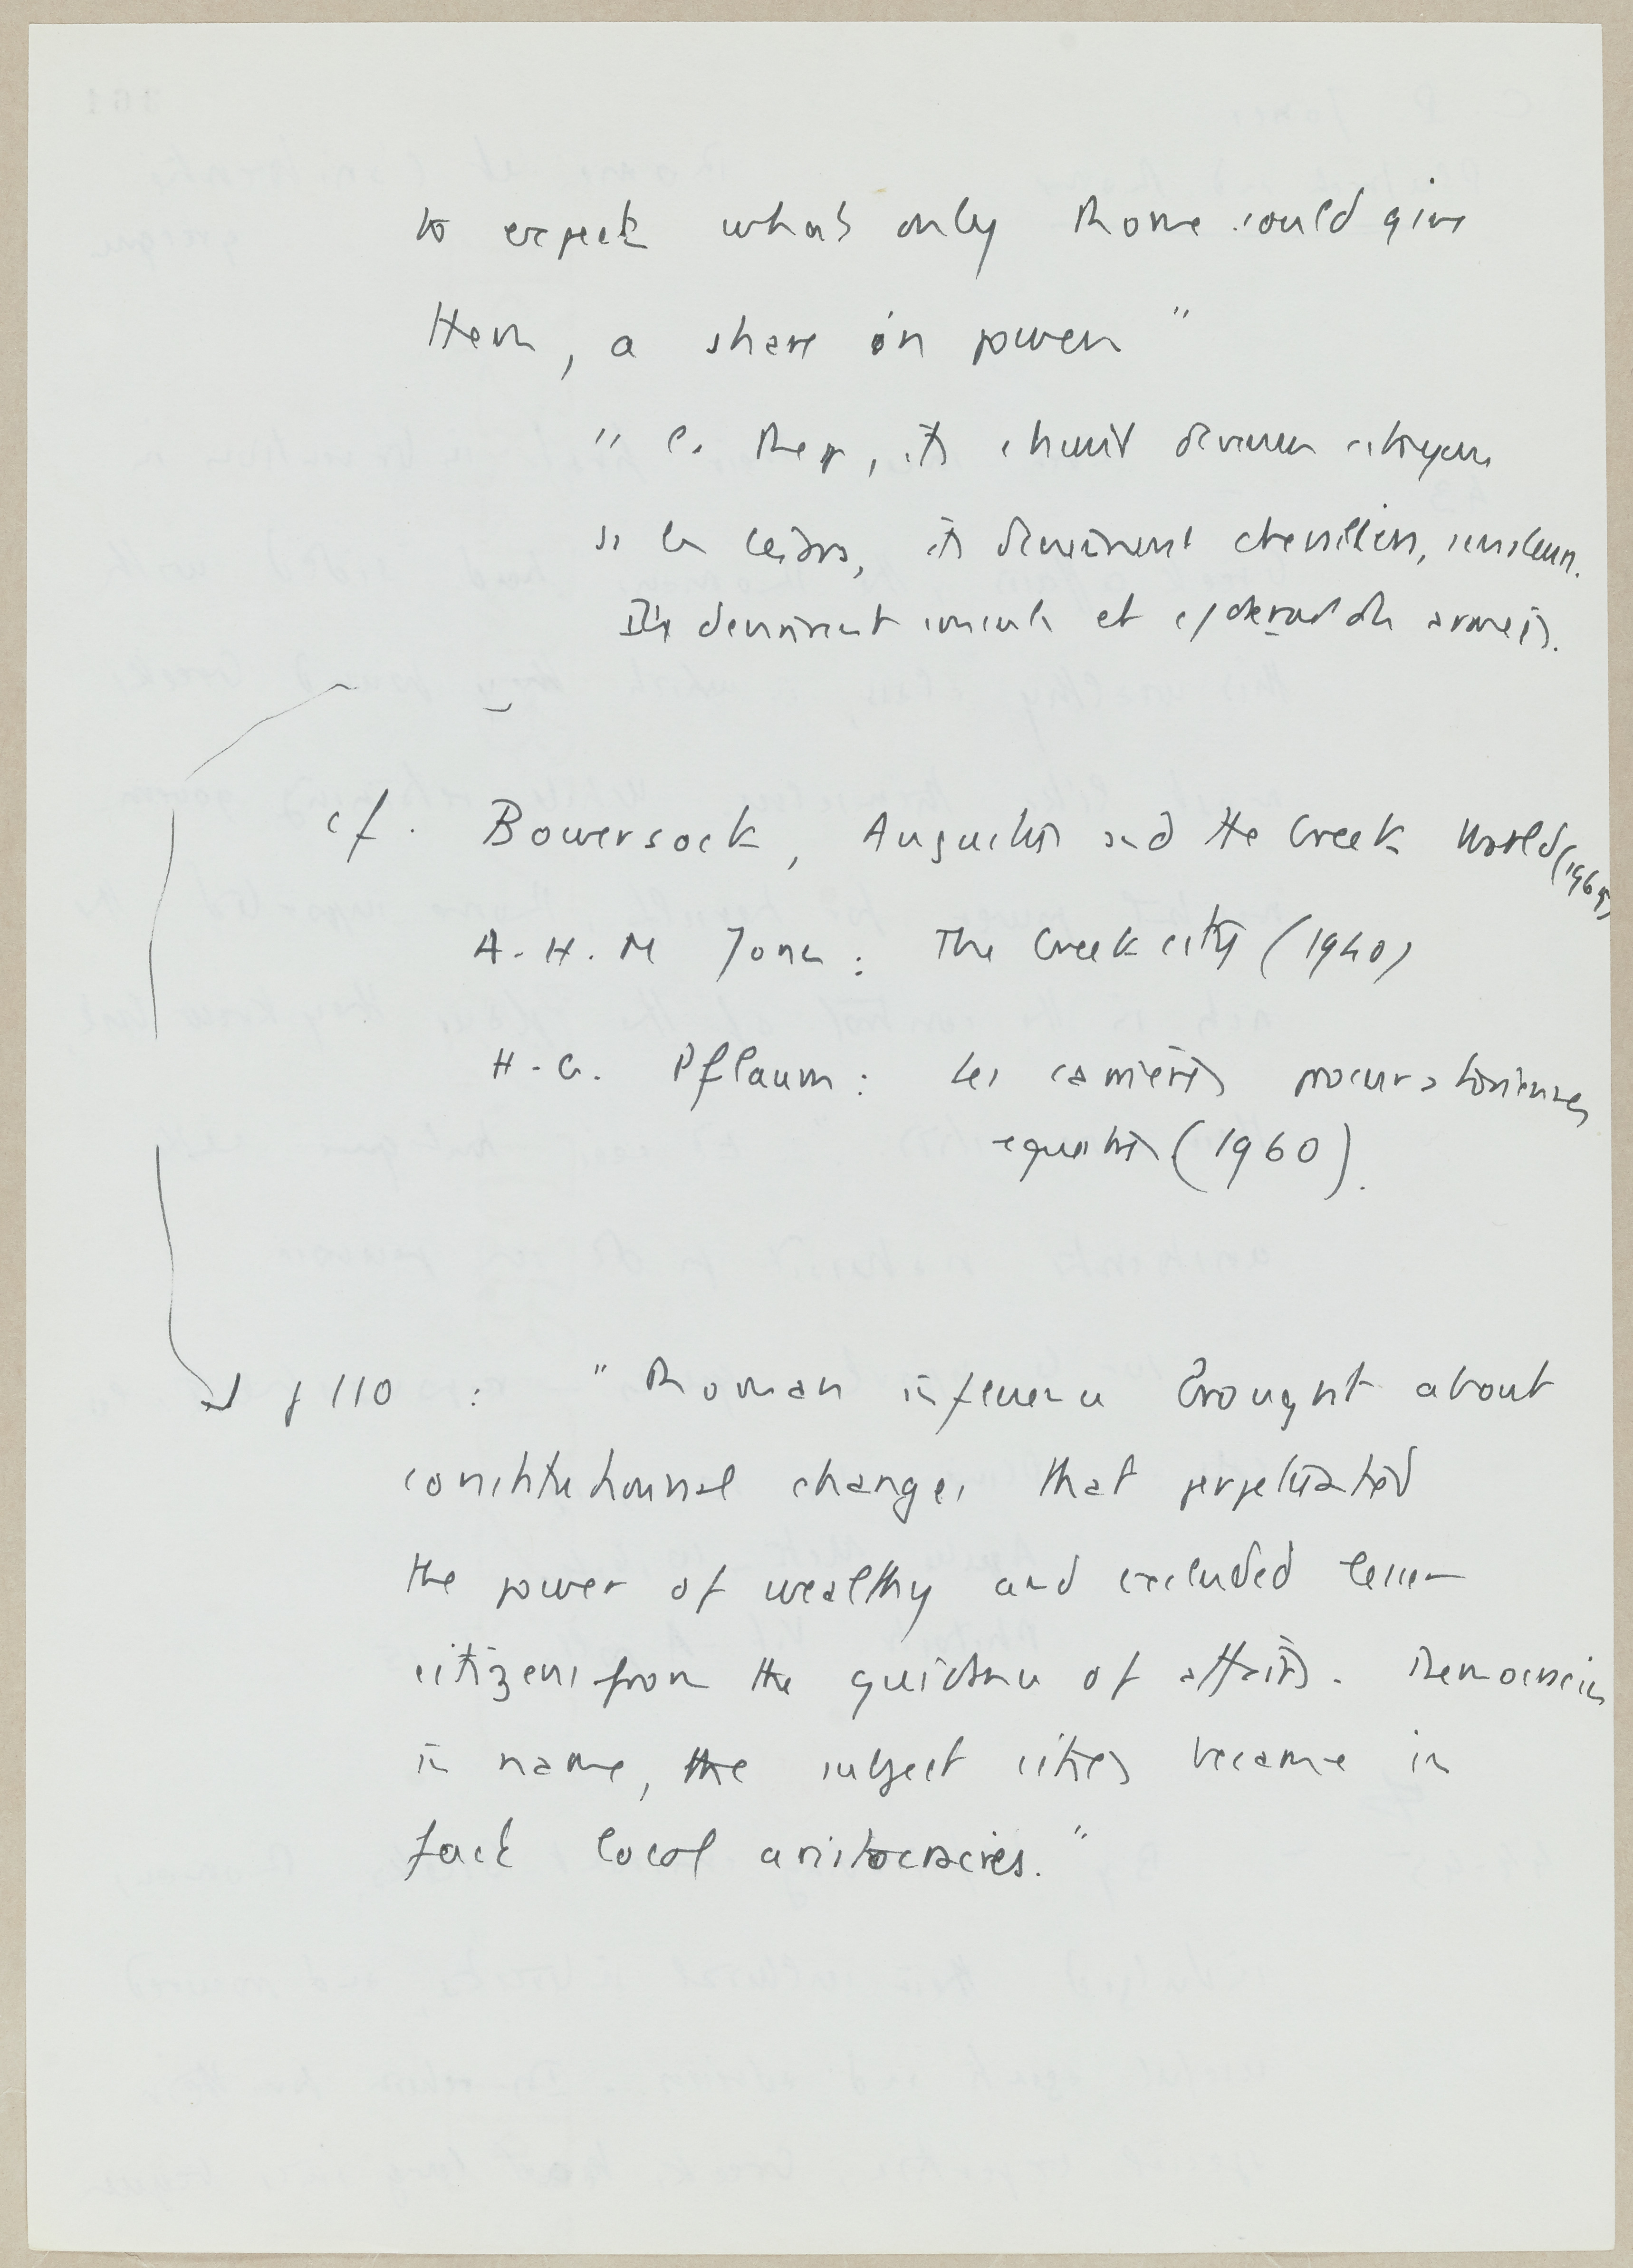 to expect what only Rome could give
them, a share in power"
" ils devenir citoyens
ils devinrent chevaliers,
Ils devinrent consuls et armées.
cf. Bowersock, Augustus and the Greek World (1965)
A. H. M Jones : The Greek city (1940)
H. G. Pflaum : Les carrières procuratoriennes
equestres (1960).
p 110 : "Roman influence brought about
constitutionnal changes that perpetuated
the power of wealthy and excluded lesser
citizens from the guidance of affairs. Democracies
in name, the subject cities became in
fact local aristocracies."